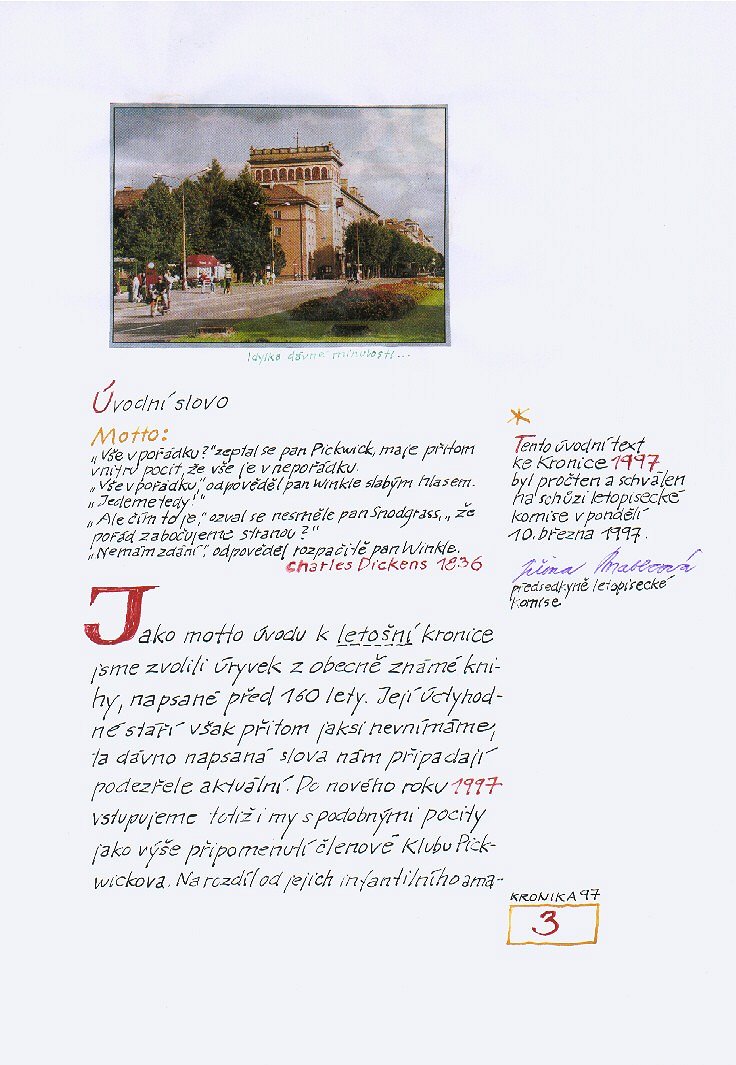 Idylka dávné minulosti...
Úvodní slovo
Motto:
„Vše v pořádku?" zeptal se pan Pickwick, maje přitom
vnitřní pocit, že vše je v nepořádku.
„Vše v pořádku," odpověděl pan Winkle slabým hlasem.
„Jedeme tedy!"
„Ale čím to je," ozval se nesměle pan Snodgrass, „že
pořád zabočujeme stranou?"
„Nemám zdání", odpověděl rozpačitě pan Winkle.
Charles Dickens 1836
Jako motto úvodu k letošní kronice
jsme zvolili úryvek z obecně známé kni-
hy, napsané před 160 lety. Její úctyhod-
né stáří však přitom jaksi nevnímáme,
ta dávno napsaná slova nám připadají
podezřele aktuální. Do nového roku 1997
vstupujeme totiž i my s podobnými pocity
jako výše připomenutí členové Klubu Pick-
wickova. Na rozdíl od jejich infantilního ama-
*
Tento úvodní text
ke Kronice 1997
byl pročten a schválen
na schůzi letopisecké
komise v pondělí
10. března 1997.
Jiřina
předsedkyně letopisecké
komise
KRONIKA 97
3